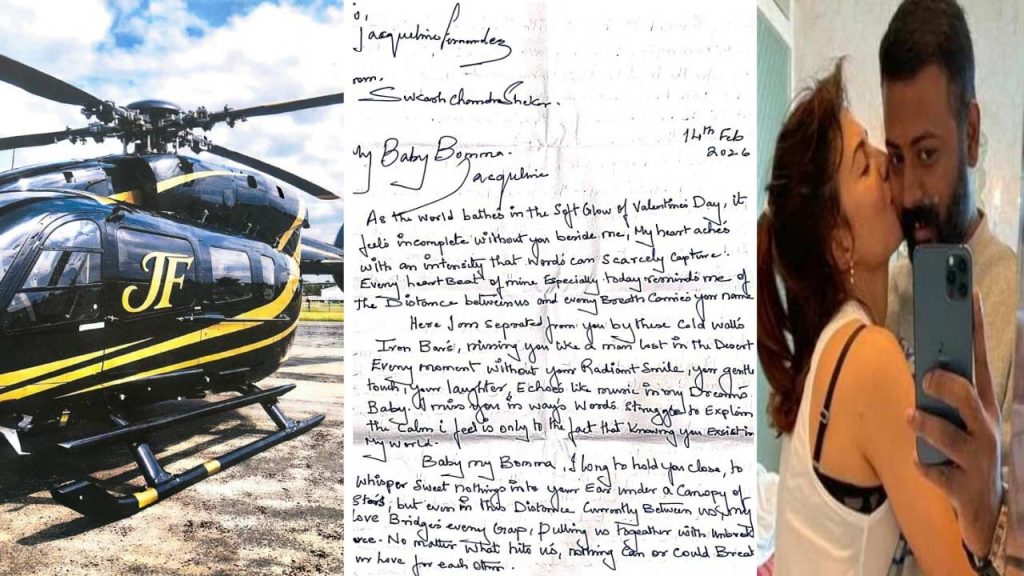 JF
To,
Jacqueline Fernandez
From,
Sukash Chandra Shekar.
14th Feb
2026
My Baby Bomma.
Jacqueline
As the world bathes in the Soft Glow of Valentines Day, it
feels incomplete without you beside me, My heart aches
with an intensity that words can scarcely capture.
Every heart Beat of mine Especially today reminds me of
the Distance between us and every Breath Carries your name
Here I am separated from you by these Cold walls
Iron Bars, missing you like a mad lost in the Desert
Every moment without your Radiant Smile, your gentle
touch, your laughter, Echoes like music in my Dreams
Baby I miss you in ways words struggle to Explain
the Calm i feel is only to the fact that knowing you Exist in
My world.
Baby my Bomma, I long to hold you close, to
whisper sweet nothings into your Ear under a Canopy of
Stars, but even in this Distance Currently Between us, my
love Bridges every Gap, Pulling us together with
No matter what hits us, nothing Can or Could Break
our love for each other.